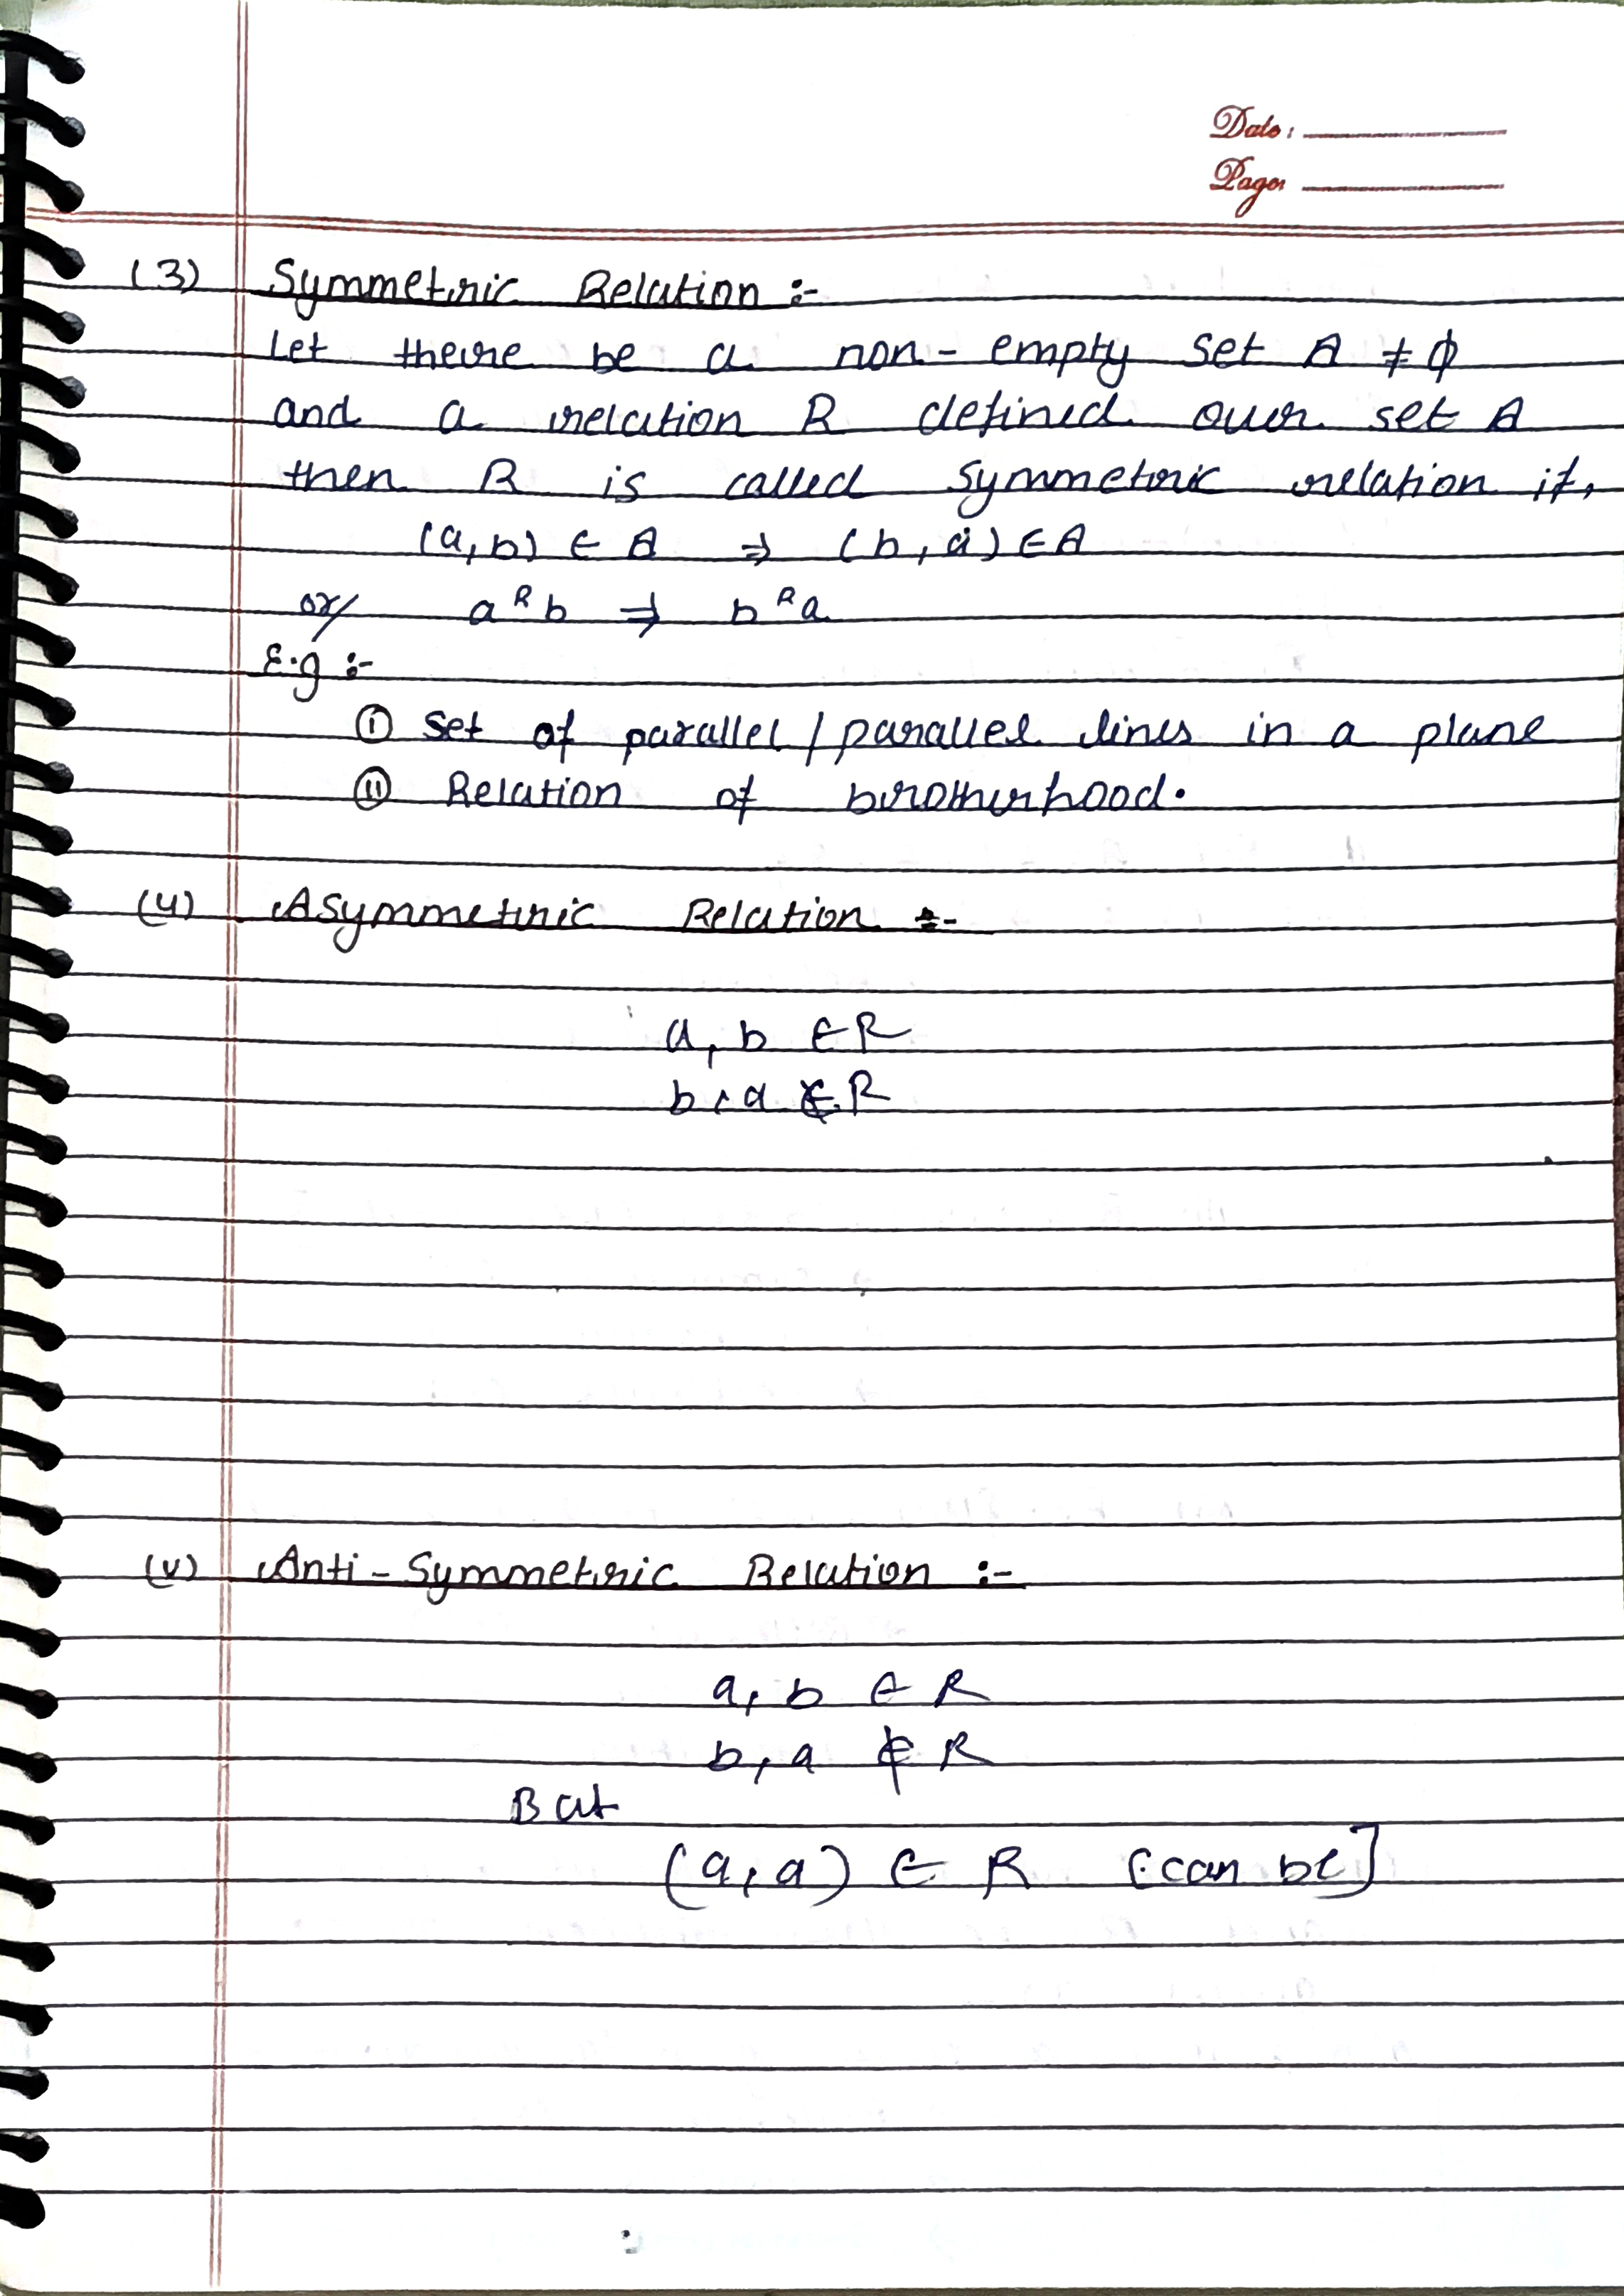 Date:
Page:
(3) Symmetric Relation :-
Let there be a non-empty set A ≠ ϕ
and a relation R defined over set A
then R is called symmetric relation if,
(a,b) ∈ A ⇒ (b,a) ∈ A
or/ a ᴿ b ⇒ b ᴿ a
E.g :-
(i) Set of parallel/parallel lines in a plane
(ii) Relation of brotherhood.
(4) Asymmetric Relation :-
a, b ∈ R
b, a ∉ R
(v) Anti-Symmetric Relation :-
a, b ∈ R
b, a ∉ R
But
(a, a) ∈ R [can be]